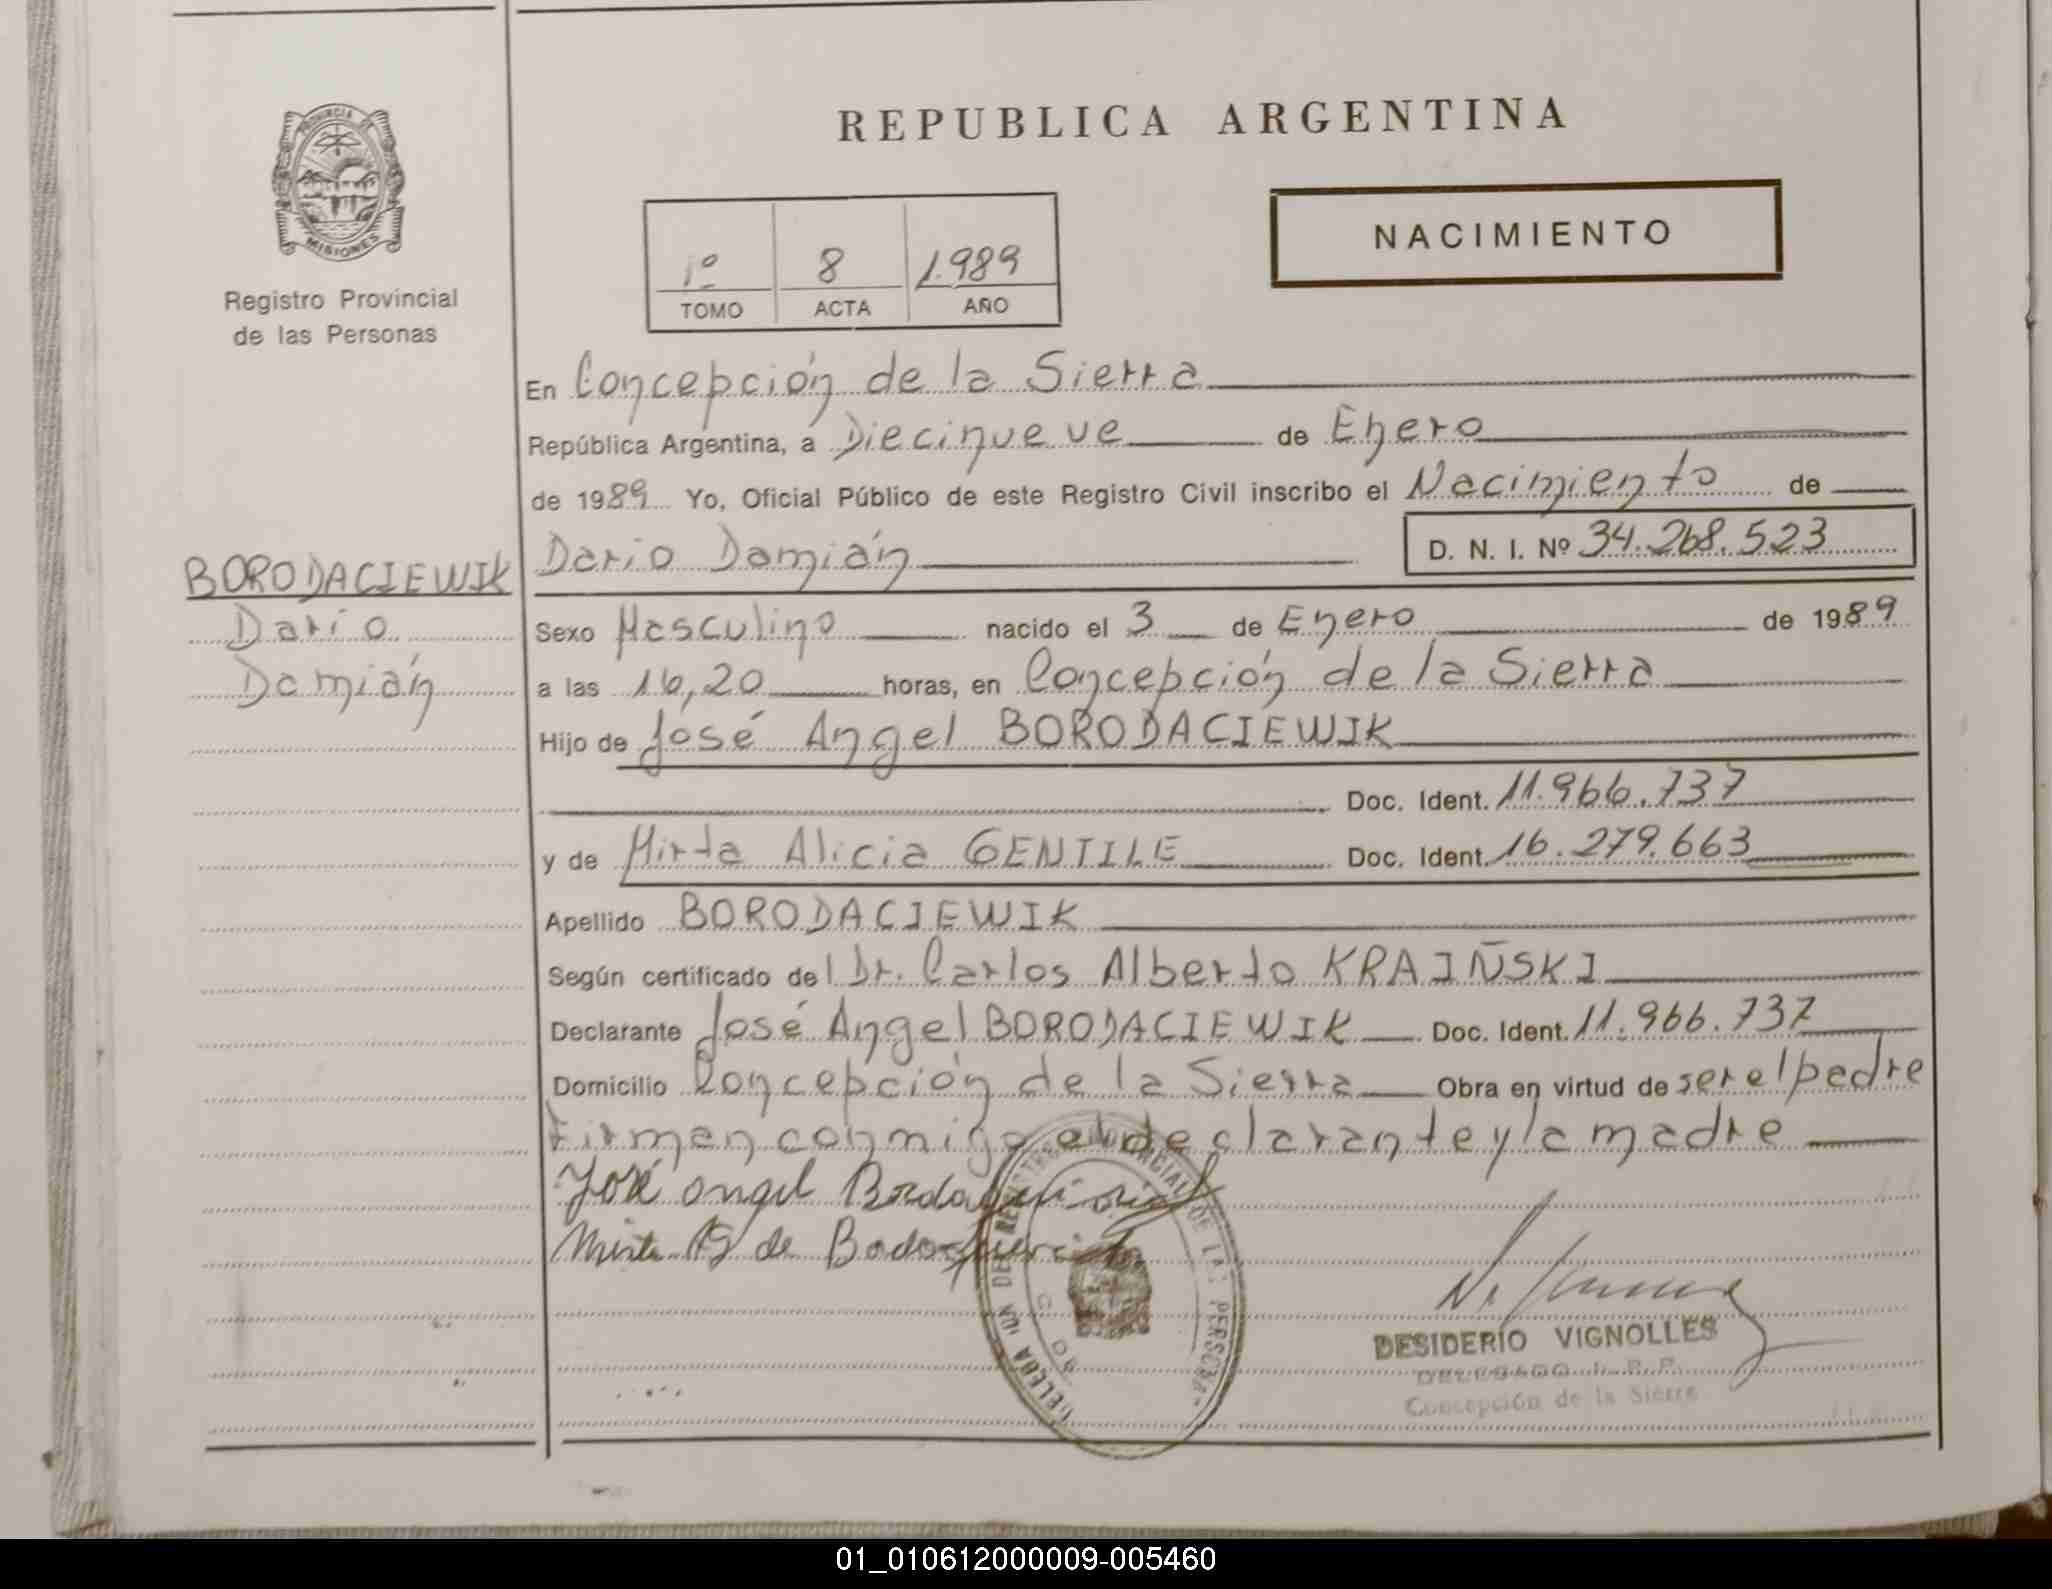 REPUBLICA ARGENTINA
PROVINCIA DE
MISIONES
Registro Provincial
de las Personas
NACIMIENTO
1º 8 1.989
TOMO ACTA AÑO
En Concepción de la Sierra
República Argentina, a Diecinueve de Enero
de 1989 Yo, Oficial Público de este Registro Civil inscribo el Nacimiento de
Dario Damián D. N. I. Nº 34.268.523
BORODACIEWIK
Darío
Damián
Sexo Masculino nacido el 3 de Enero de 1989
a las 16,20 horas, en Concepción de la Sierra
Hijo de José Angel BORODACIEWIK
Doc. Ident. 11.966.737
y de Mirta Alicia GENTILE Doc. Ident. 16.279.663
Apellido BORODACIEWIK
Según certificado del Dr. Carlos Alberto KRAIÑSKI
Declarante José Angel BORODACIEWIK Doc. Ident. 11.966.737
Domicilio Concepción de la Sierra Obra en virtud de ser el padre
Firman conmigo el declarante y la madre
José Angel
de
DESIDERIO VIGNOLLES
DELEGADO R. P. P.
Concepción de la Sierra
01_010612000009-005460